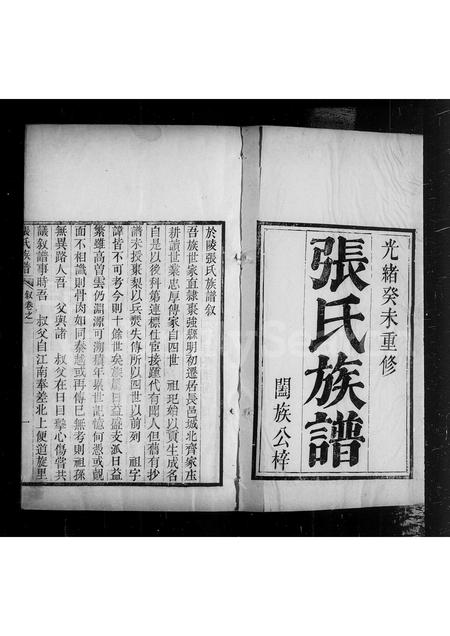 光緒癸未重修
張氏族譜
闔族公梓
於陵張氏族譜叙
吾族世家直隸棗強縣明初遷居長邑城北齊家庄
耕讀世業忠厚傳家自四世 祖玘始以貢生成名
自是以後科第連標仕宦接踵代有聞人但舊有抄
譜未授棗梨以兵燹失傳所以四世以前列 祖字
諱皆不可考今則十餘世矣族屬日益蕃支派日益
繁雖高曾雲仍淵源可溯積年累世記憶何憑或覿
面不相識則骨肉如同秦越或再傳已無考則祖孫
無異路人吾 父與諸 叔父在日目擊心傷嘗共
議叙譜事時吾 叔父自江南奉差北上便道旋里
張氏族譜 叙卷之一 一